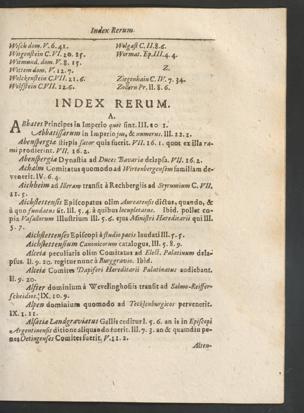 Index Rerum.
Wosch dom. V. 6. 41.
Wirgenstein C. VI. 10. 25.
Witmund. dom. V. 8. 15.
Wittem dom. V. 12. 7.
Wolckenstein C. VII. 21. 6.
Wolfstein C. VII. 22. 6.
Wulgast C. II. 8. 6.
Wormat. Ep. III. 4. 4.
Z.
Ziegenhain C. IV. 7. 34.
Zollern Pr. II. 8. 6.
INDEX RERUM.
A.
ABbates Principes in Imperio quot sint. III. 10. 1.
Abbatissarum in Imperio jus, & numerus. III. 22. 1.
Abenspergia stirpis sator quis fuerit. VII. 16. 1. quos ex illa ra-
mi prodierint. VII. 16. 2.
Abenspergia Dynastia ad Duces Bavariæ delapsa. VII. 16. 2.
Achalm Comitatus quomodo ad Wirtenbergensem familiam de-
venerit. IV. 6. 4.
Aichheim ad Illeram transit à Rechbergiis ad Styrumium C. VII.
21. 5.
Aichstettensis Episcopatus olim Aureatensis dictus, quando, &
à quo fundatus sit. III. 5. 4. à quibus locupletatus. Ibid. pollet co-
pia Vasallorum Illustrium III. 5. 6. quæ Ministri Hæreditarii qui III.
5. 7.
Aichstettenses Episcopi à studio pacis laudati III. 5. 5.
Aichstettensium Canonicorum catalogus. III. 5. 8. 9.
Alceia peculiaris olim Comitatus ad Elect. Palatinum dela-
psus. II. 9. 20. regitur nunc à Burggravio. Ibid.
Alceia Comites Dapiferi Hæreditarii Palatinatus audiebant.
II. 9. 20.
Alfter dominium à Wevelinghofiis transit ad Salmo-Reiffer-
scheidios. IX. 10. 9.
Alpen dominium quomodo ad Tecklenburgicos pervenerit.
IX. 1. 11.
Alsatiæ Landgraviatus Gallis ceditur I. 5. 6. an is in Episcopi
Argentinensis ditione aliquando fuerit. III. 7. 3. an & quamdiu pe-
nes Oetingenses Comites fuerit. V. 11. 2.
Alten-